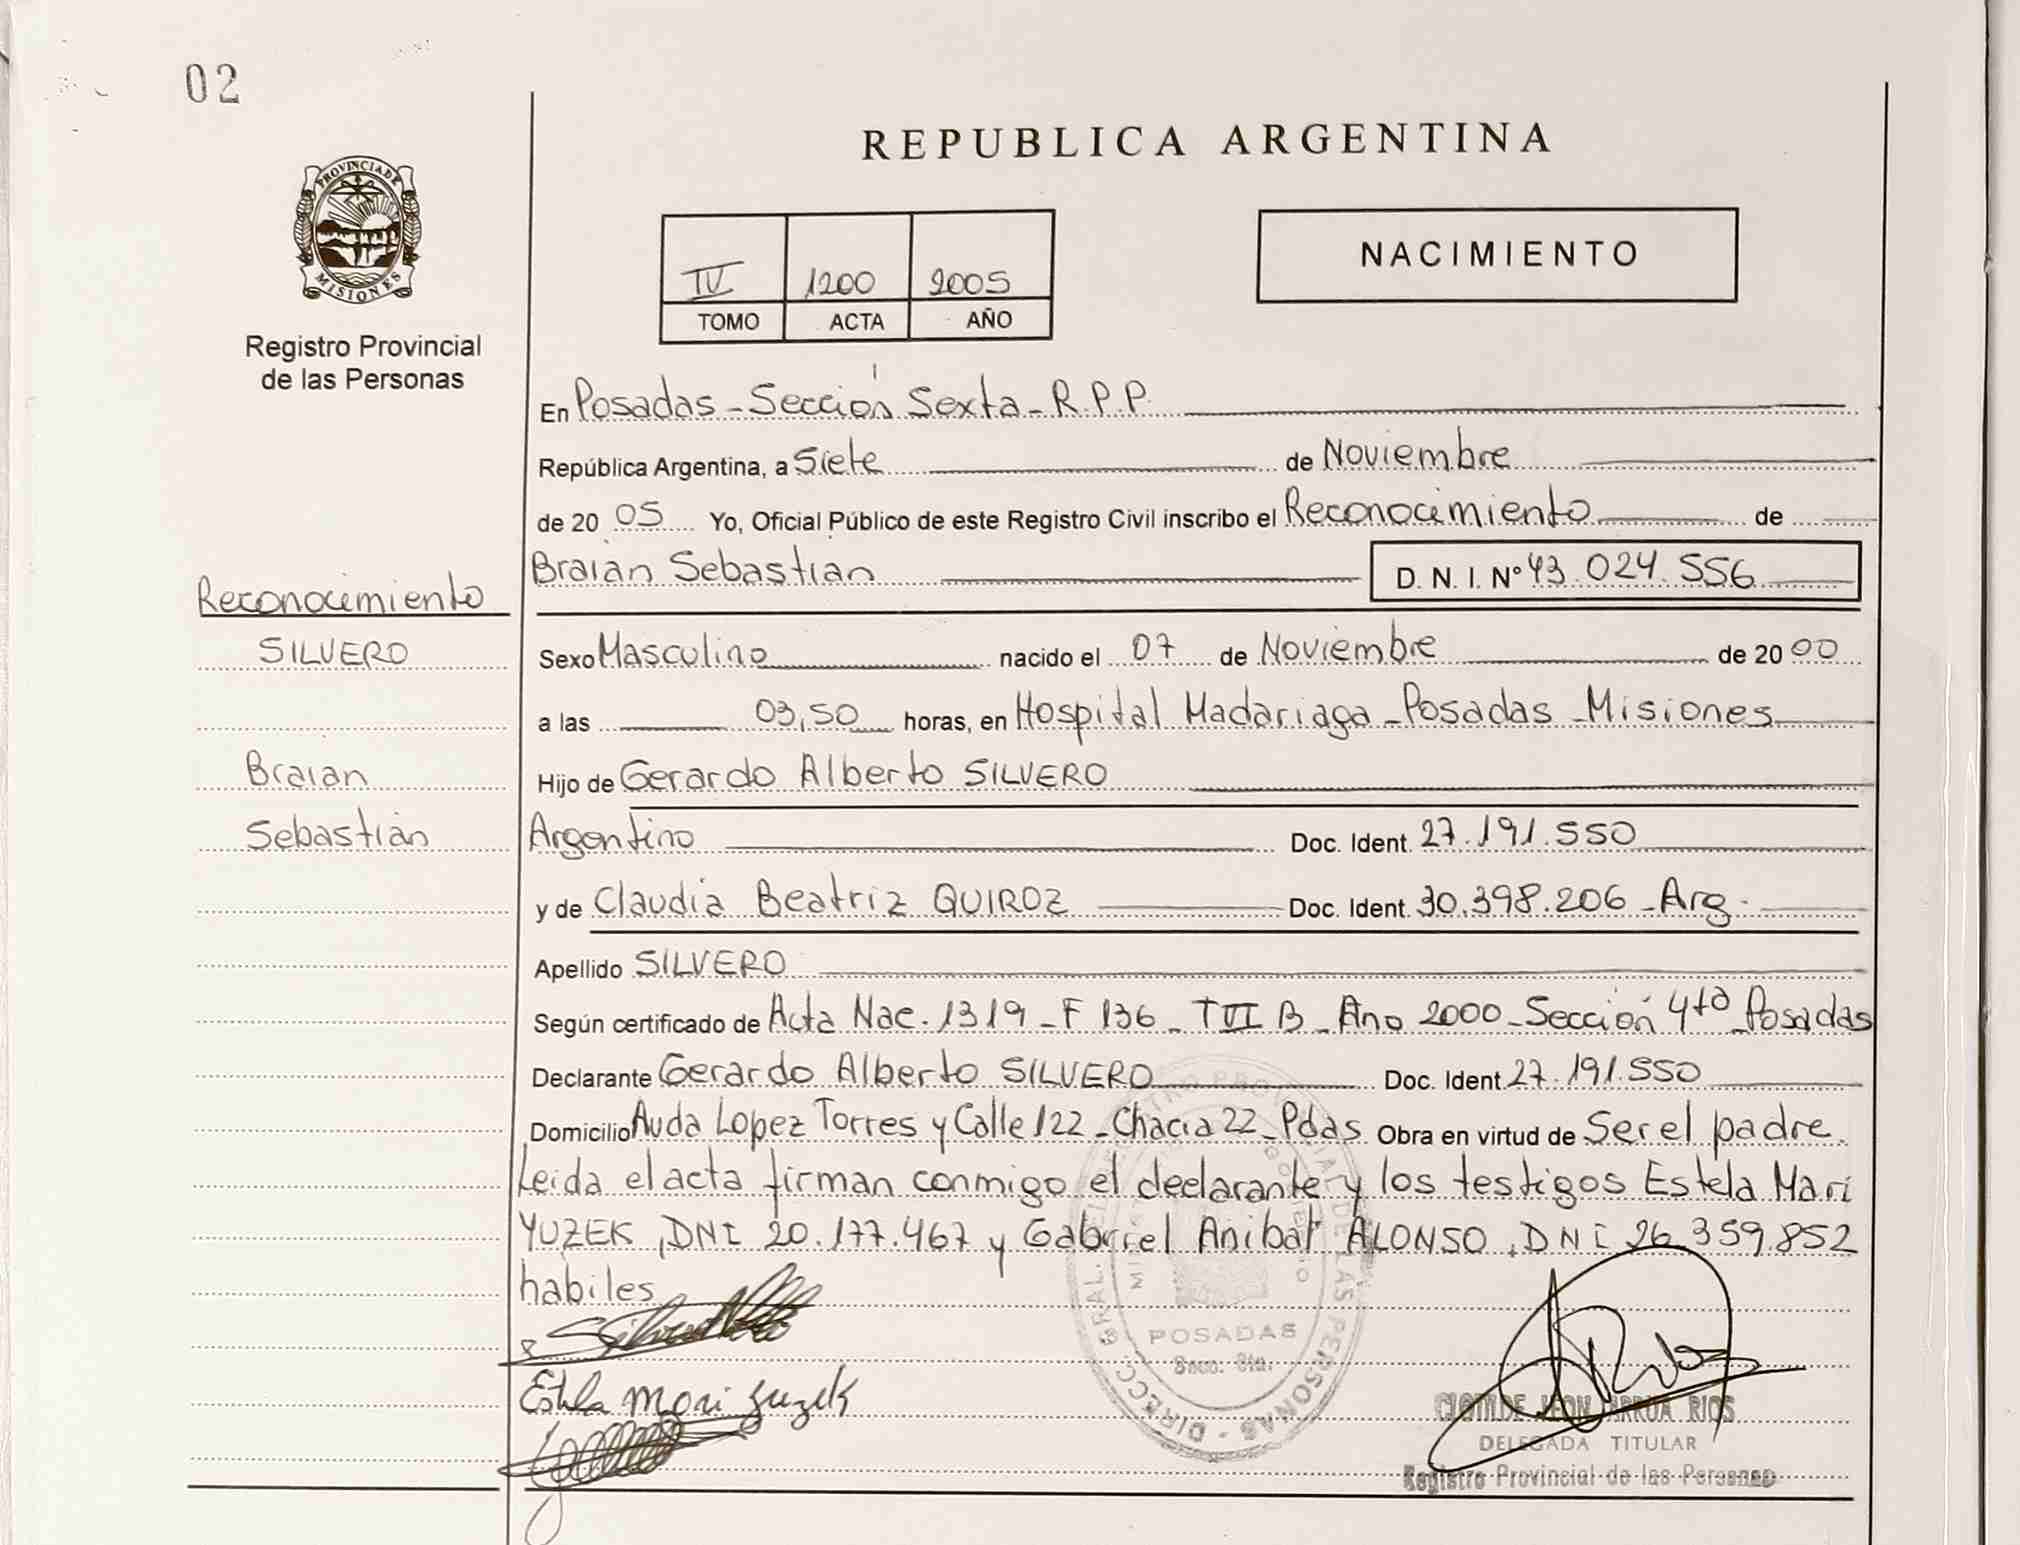 02
PROVINCIA DE
MISIONES
Registro Provincial
de las Personas
REPUBLICA ARGENTINA
IV 1200 2005
TOMO ACTA AÑO
NACIMIENTO
En Posadas - Sección Sexta - R.P.P.
República Argentina, a Siete de Noviembre
de 20 05 Yo, Oficial Público de este Registro Civil inscribo el Reconocimiento de
Braian Sebastian D. N. I. Nº 43.024.556
Reconocimiento
SILVERO
Braian
Sebastián
Sexo Masculino nacido el 07 de Noviembre de 20 00
a las 03,50 horas, en Hospital Madariaga - Posadas - Misiones
Hijo de Gerardo Alberto SILVERO
Argentino Doc. Ident. 27.191.550
y de Claudia Beatriz QUIROZ Doc. Ident. 30.398.206 - Arg.
Apellido SILVERO
Según certificado de Acta Nac. 1319 - F 136 - T VI B - Año 2000 - Sección 4ta - Posadas
Declarante Gerardo Alberto SILVERO Doc. Ident. 27.191.550
Domicilio Avda Lopez Torres y Calle 122 - Chacra 22 - Pdas Obra en virtud de Ser el padre.
Leida el acta firman conmigo el declarante y los testigos Estela Mari
YUZEK, DNI 20.177.467 y Gabriel Anibal ALONSO, DNI 26.359.852
habiles
Estela Mari Yuzek
DIRECC. GRAL. DEL REGISTRO PROVINCIAL DE LAS PERSONAS
POSADAS
Secc. 6ta.
ARRUA RIOS
DELEGADA TITULAR
Registro Provincial de las Personas